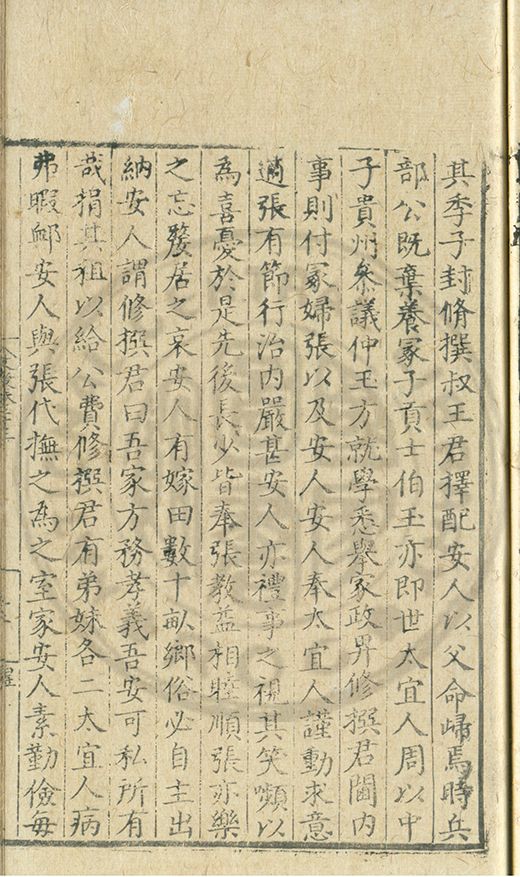 其季子封脩撰叔玉君擇配安人以父命歸焉時兵
部公既棄養冢子貢士伯玉亦即世太宜人周以中
子貴州叅議仲玉方就學悉舉家政畀修撰君閫內
事則付冢婦張以及安人安人奉太宜人謹動求意
適張有節行治內嚴甚安人亦禮事之視其笑嚬以
為喜憂於是先後長少皆奉張教益相睦順張亦樂
之忘嫠居之哀安人有嫁田數十畝鄉俗必自主出
納安人謂修撰君曰吾家方務孝義吾安可私所有
哉捐其租以給公費修撰君有弟妹各二太宜人病
弗暇卹安人與張代撫之為之室家安人素勤儉每